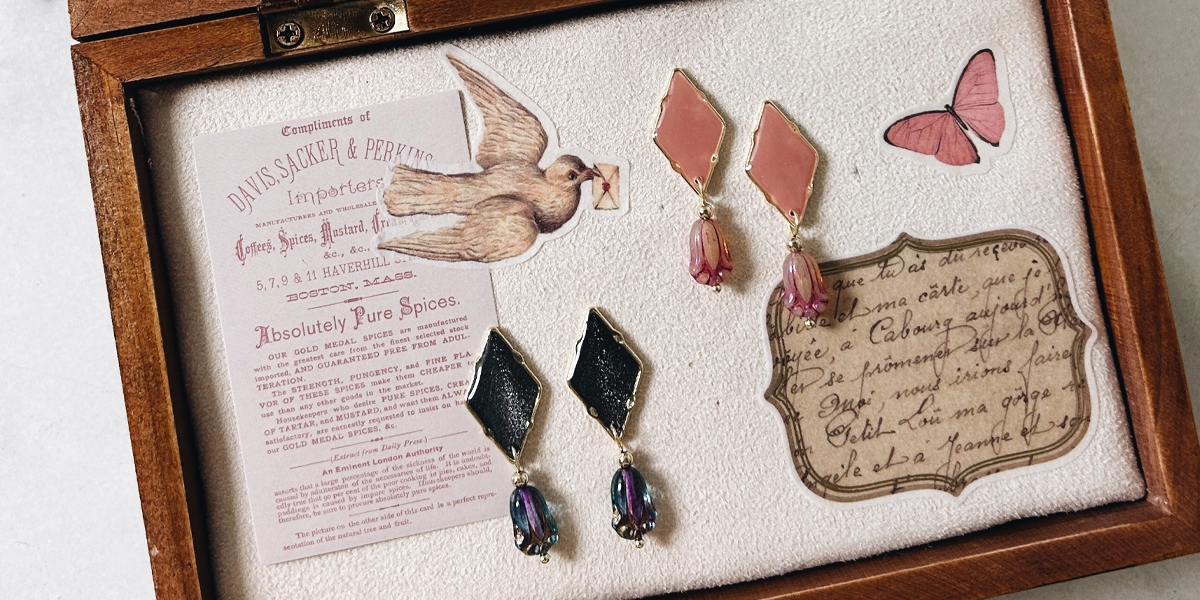 Compliments of
DAVIS, SACKER & PERKINS
Importers
MANUFACTURERS AND WHOLESALE
Coffees, Spices, Mustard,
&c., &c.
5, 7, 9 & 11 HAVERHILL
BOSTON, MASS.
Absolutely Pure Spices.
OUR GOLD MEDAL SPICES are manufactured
with the greatest care from the finest selected stock
imported, AND GUARANTEED FREE FROM ADUL-
TERATION.
The STRENGTH, PUNGENCY, and FINE FLA-
VOR OF THESE SPICES make them CHEAPER
use than any other goods in the market.
Housekeepers who desire PURE SPICES, CREA
OF TARTAR, and MUSTARD, and want them ALWA
satisfactory, are earnestly requested to insist on ha
our GOLD MEDAL SPICES, &c.
(Extract from Daily Press.)
An Eminent London Authority
asserts that a large percentage of the sickness of the world is
caused by adulteration of the necessaries of life. It is undoubt-
edly true that 90 per cent of the poor cooking in pies, cakes, and
puddings is caused by impure spices. Housekeepers should,
therefore, be sure to procure absolutely pure spices.
The picture on the other side of this card is a perfect repre-
sentation of the natural tree and fruit.
que tu as du reçevo
et ma cârte, que je
a Cabourg aujourd'
se prômener sur la
Moi, nous irions faire
Petit Loü ma gorge
et a Jeanne et so